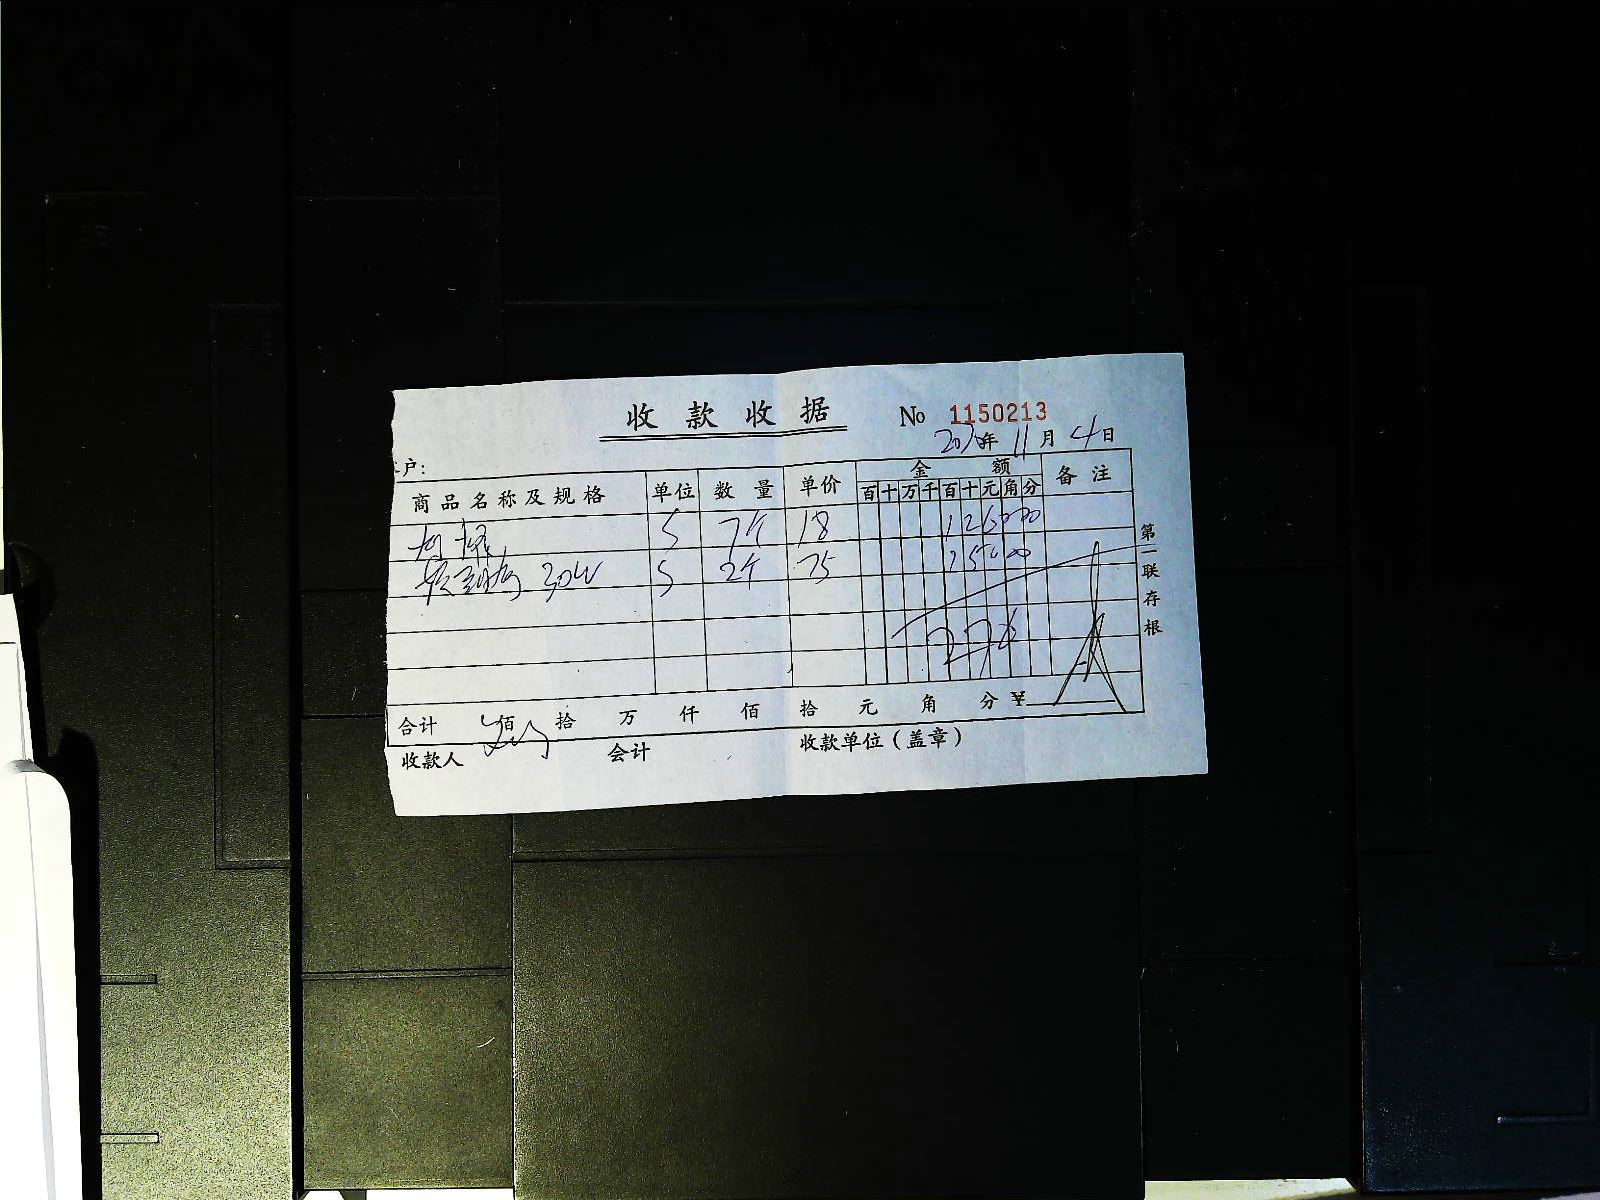 收款收据 No 1150213
年 11 月 4 日
户:
商品名称及规格 单位 数量 单价 金额 备注
百 十 万 千 百 十 元 角 分
S 7个 18 126 00
30W S 2个 75 150 00
276
第一联存根
合计 佰 拾 万 仟 佰 拾 元 角 分 ¥
收款人 会计 收款单位(盖章)